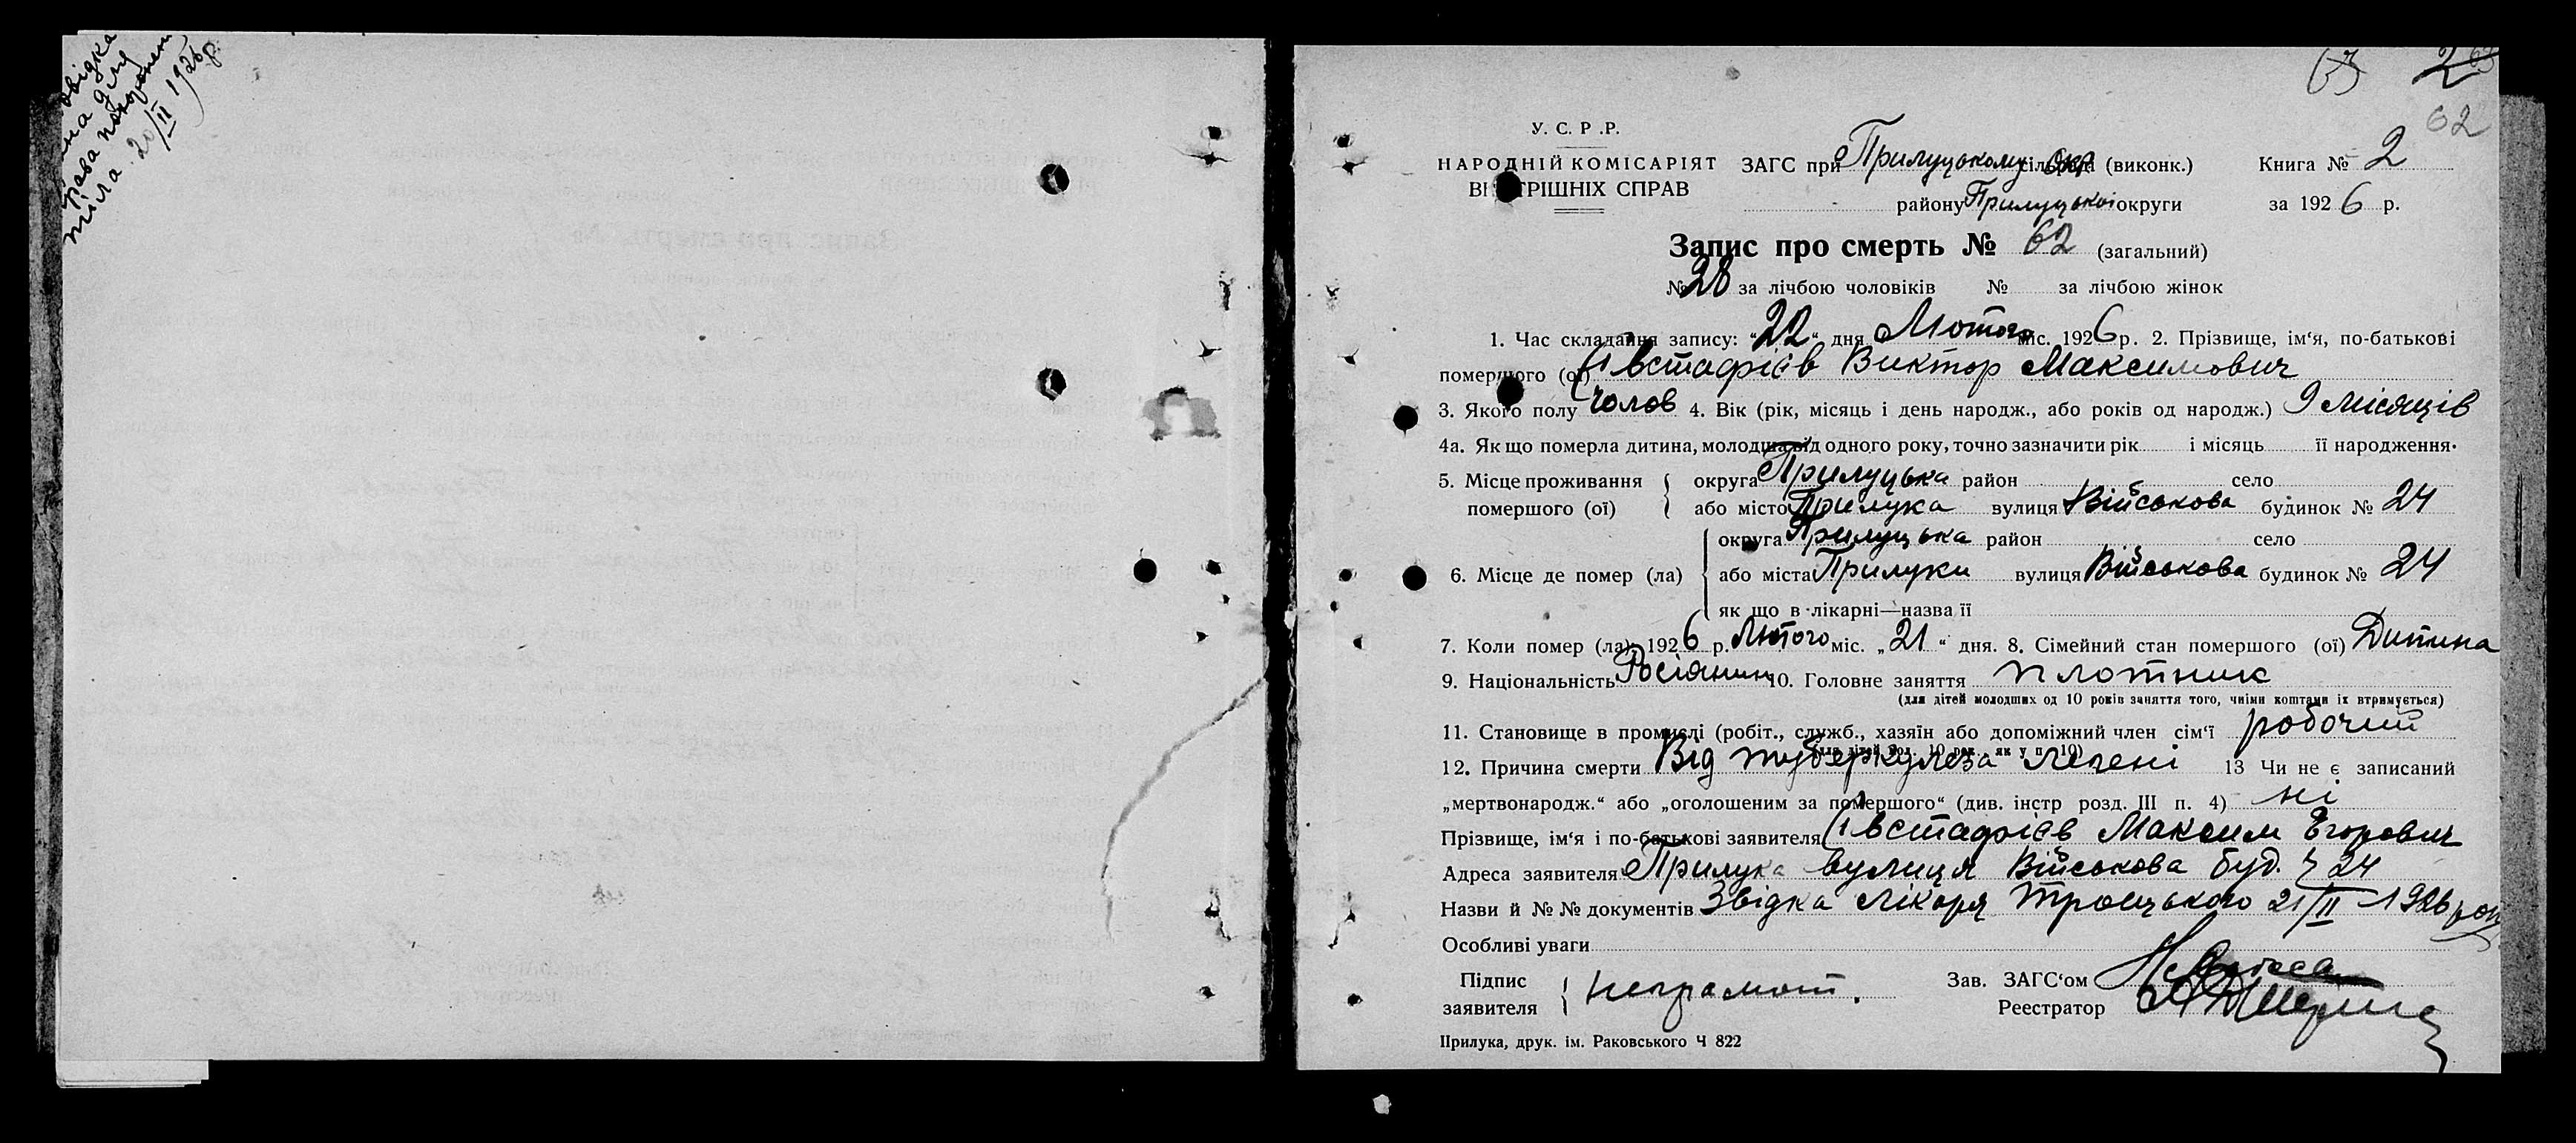 звідка
на для
права похоронен
тіла. 20/II 1926 р
63
2
62
У. С. Р. Р.
НАРОДНІЙ КОМІСАРІЯТ ЗАГС при Прилуцькому сільради Окр (виконк.) Книга № 2
ВНУТРІШНІХ СПРАВ району Прилуцької округи за 1926 р.
Запис про смерть № 62 (загальний)
№ 28 за лічбою чоловіків № за лічбою жінок
1. Час складання запису: "22" дня Лютого міс. 1926 р. 2. Прізвище, ім'я, по-батькові
помершого (ої) Євстафієв Виктор Максимович
3. Якого полу чолов 4. Вік (рік, місяць і день народж., або років од народж.) 9 місяців
4а. Як що померла дитина, молодша від одного року, точно зазначити рік і місяць її народження.
5. Місце проживання округа Прилуцька район село
помершого (ої) або місто Прилука вулиця Військова будинок № 24
округа Прилуцька район село
6. Місце де помер (ла) або міста Прилуки вулиця Військова будинок № 24
як що в лікарні—назва її
7. Коли помер (ла) 1926 р. Лютого міс. „21" дня. 8. Сімейний стан помершого (ої) Дитина
9. Національність Росіянин 10. Головне заняття плотник
(для дітей молодших од 10 років заняття того, чиїми коштами їх втримується)
11. Становище в промислі (робіт., служб., хазяїн або допоміжний член сім'ї робочий
(для дітей мол. 10 рок. як у п. 10)
12. Причина смерти Від туберкулеза легені 13 Чи не є записаний
„мертвонародж." або „оголошеним за помершого" (див. інстр розд. III п. 4) ні
Прізвище, ім'я і по-батькові заявителя Євстафієв Максим Егорович
Адреса заявителя Прилука вулиця Військова буд. ч 24
Назви й №№ документів Звідка лікаря Троицького 21/II-1926 рок
Особливі уваги
Підпис Зав. ЗАГС'ом
заявителя неграмот. Реестратор
Прилука, друк. ім. Раковського Ч 822